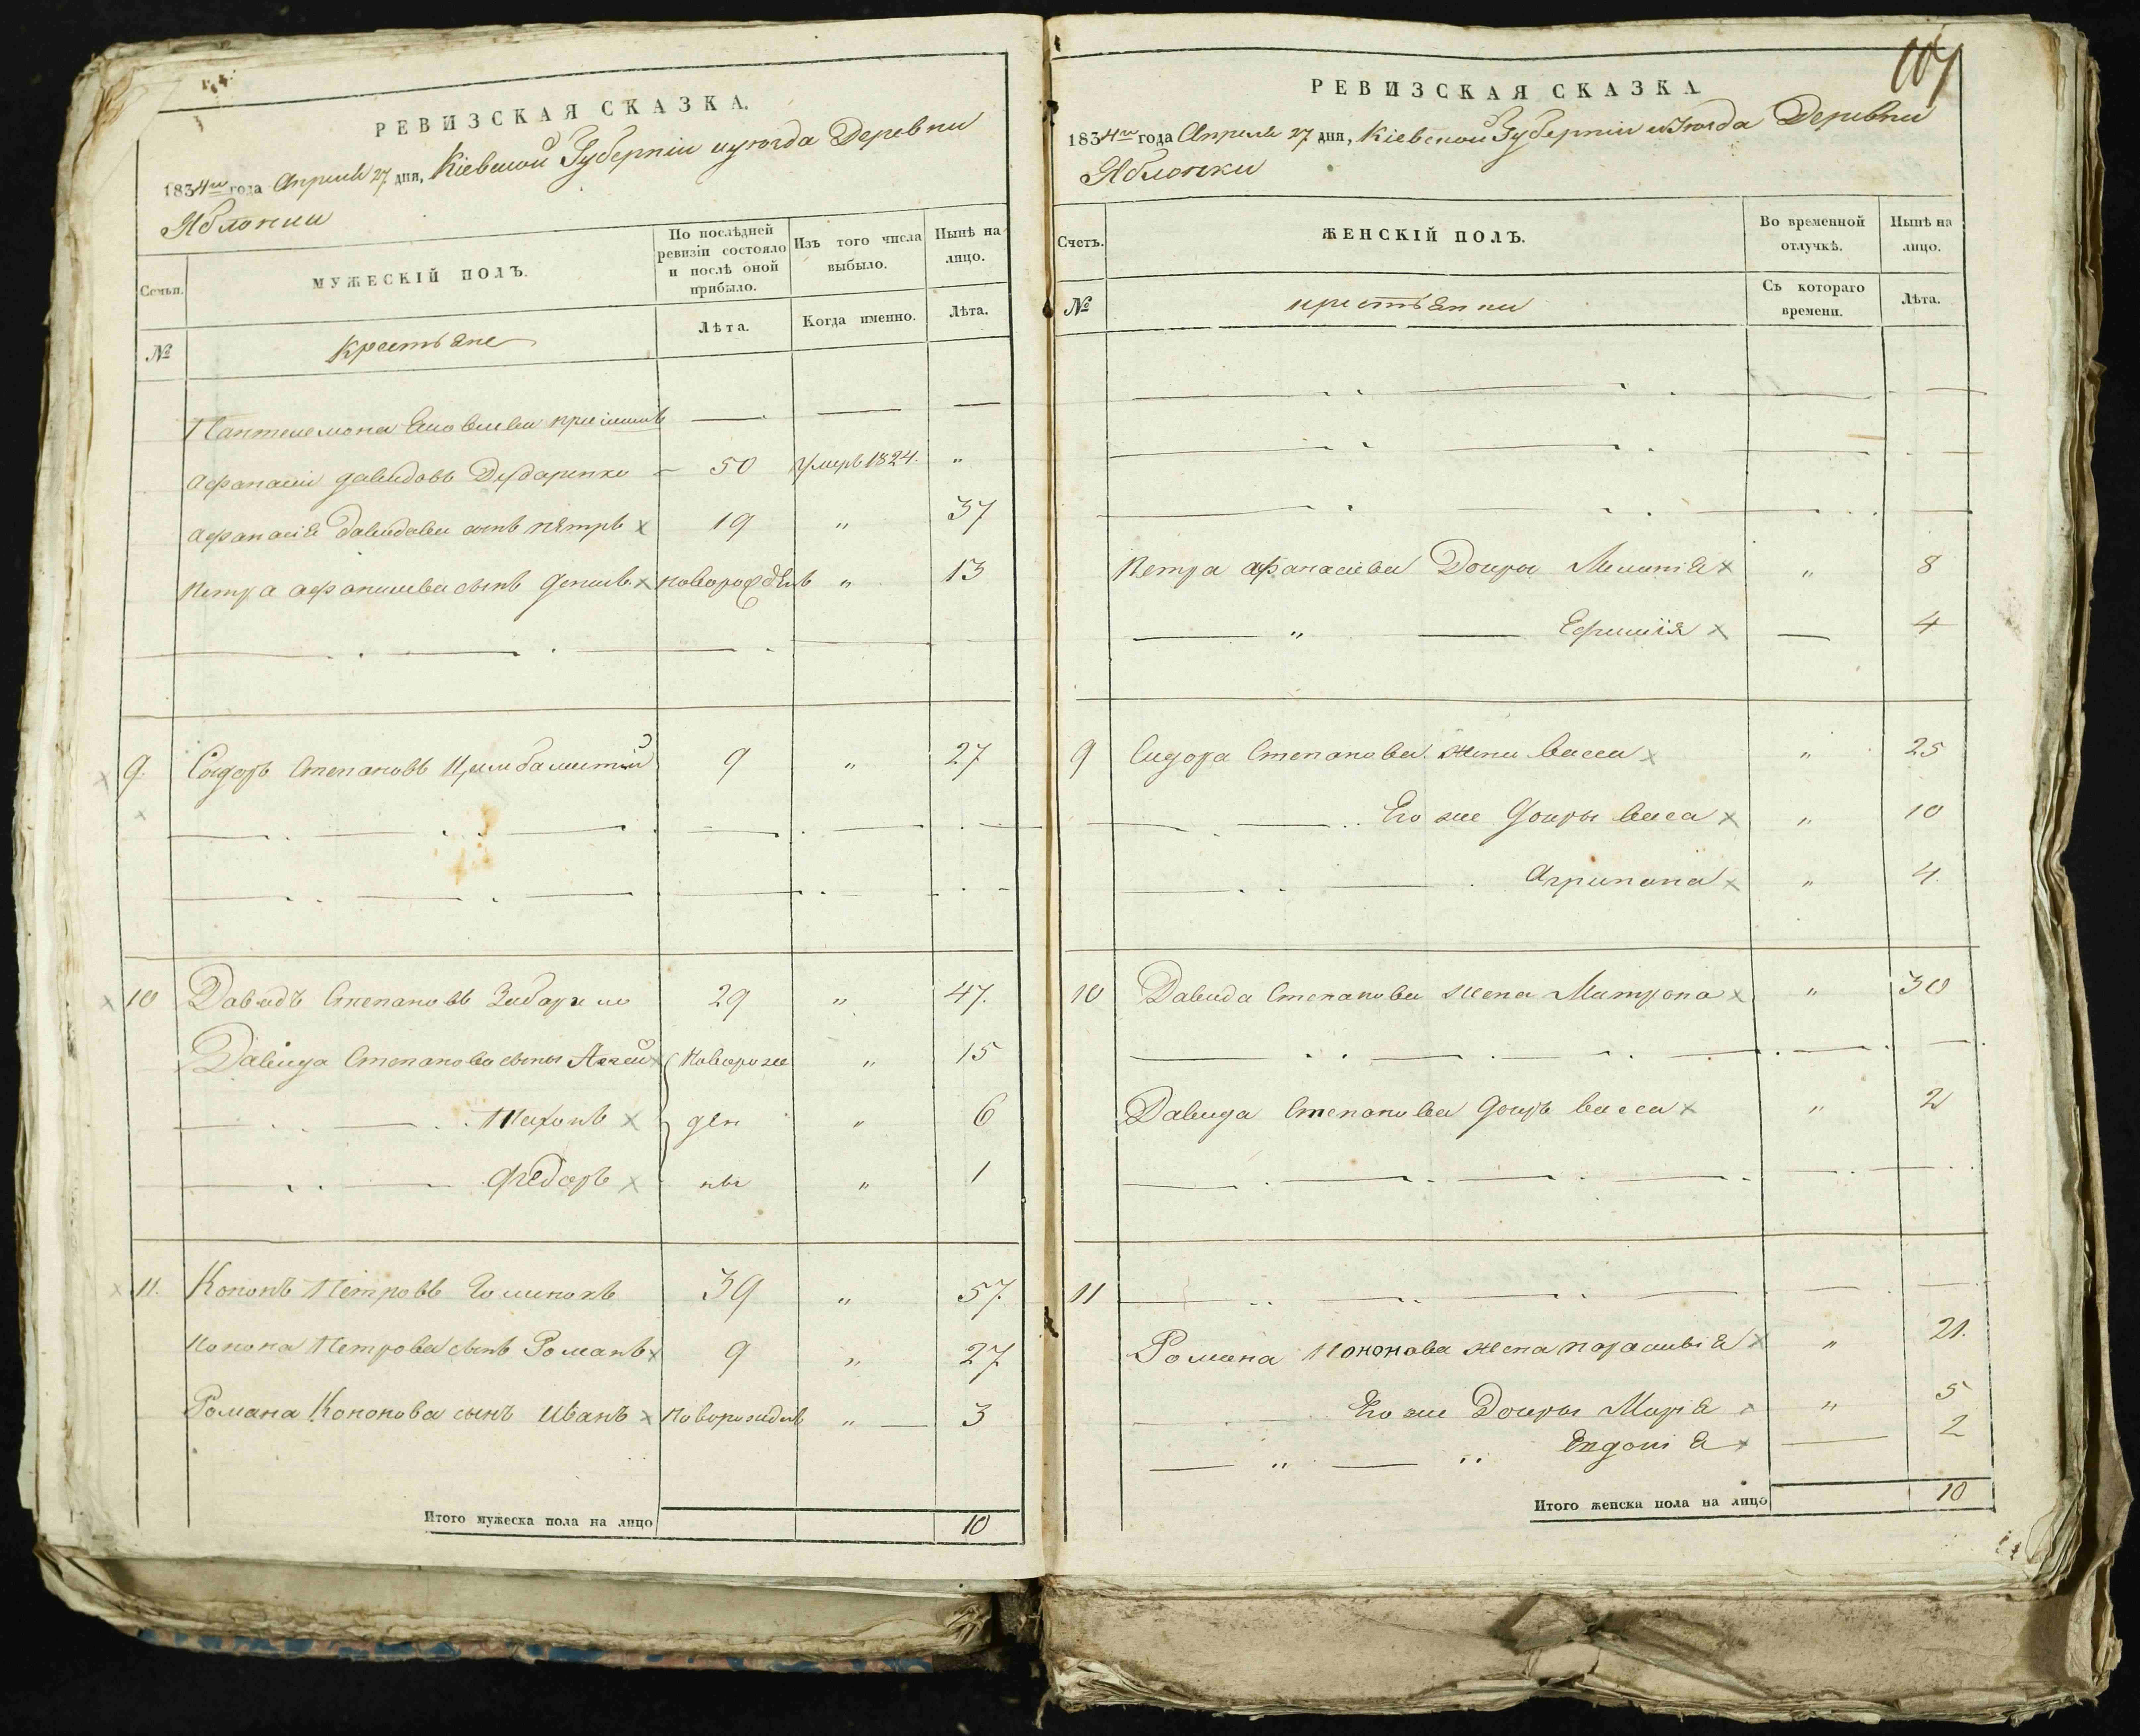 РЕВИЗСКАЯ СКАЗКА.
1834го года Апреля 27 дня, Кіевской Губерніи и уѣзда Деревни
Яблонки
Семьи.
МУЖЕСКІЙ ПОЛЪ.
По послѣдней ревизіи состояло и послѣ оной прибыло.
Изъ того числа выбыло.
Нынѣ на лицо.
№
Крестьяне
Лѣта.
Когда именно.
Лѣта.
Пантелемона
Афанасій давидовъ 50 Умеръ 1824. "
Афанасія давидова сынъ петръ 19 " 37
Петра афанасиева сынъ денисъ новорожденъ " 13
9. Сидоръ Степановъ 9 " 27
10 Давидъ Степановъ 29 " 47.
Давида Степанова сыны новорож " 15
ден " 6
Федоръ ны " 1
11. Кононъ Петровъ 39 " 57.
Конона Петрова сынъ Романъ 9 " 27
Романа Кононова сынъ Иванъ новорожденъ " 3
Итого мужеска пола на лицо 10
107
РЕВИЗСКАЯ СКАЗКА
1834го года Апреля 27 дня, Кіевской Губерніи и уѣзда Деревни
Яблонки
Счетъ.
ЖЕНСКІЙ ПОЛЪ.
Во временной отлучкѣ.
Нынѣ на лицо.
№
крестьянки
Съ котораго времени.
Лѣта.
Петра афанасіева Дочры Меланія " 8
" Ефимія 4
9 Сидора Степанова жена васса " 25
Его же дочры васа " 10
Агрипина " 4.
10 Давида Степанова жена Матрона " 30
Давида Степанова дочръ васса " 2
11
Романа Кононова жена парасивія " 21.
Его же Дочры Марія " 5
" " Евдокія 2
Итого женска пола на лицо 10